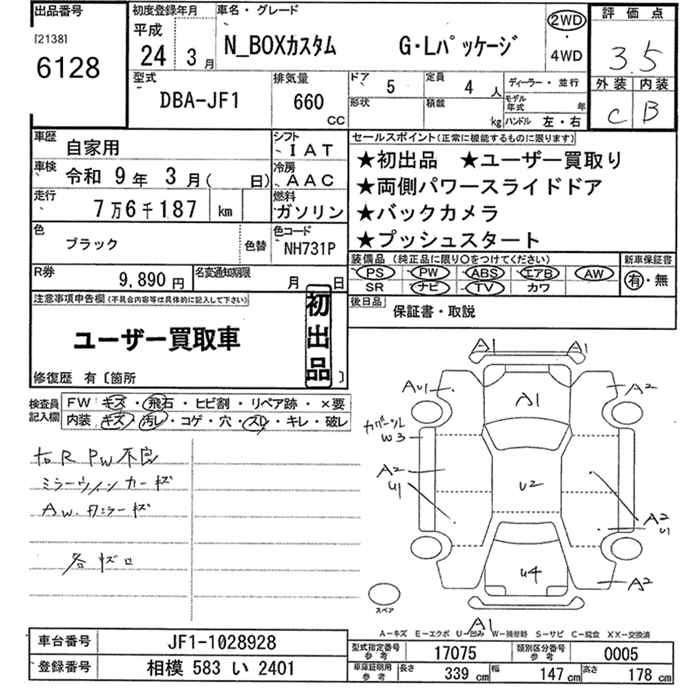 出品番号
[2138]
6128
初度登録年月
平成
24年 3月
車名・グレード
N_BOXカスタム G・Lパッケージ
2WD
4WD
評価点
3.5
外装 内装
C B
型式
DBA-JF1
排気量
660 CC
ドア 5
形状
定員 4人
積載 kg
ディーラー・並行
モデル年式 年
ハンドル 左・右
車歴 自家用
シフト IAT
車検 令和 9年 3月( 日)
冷房 AAC
走行 7万6千187 km
燃料 ガソリン
色 ブラック
色替
色コード NH731P
R券 9,890円
名変通知期限 月 日
セールスポイント(正常に機能するものに限ります)
★初出品 ★ユーザー買取り
★両側パワースライドドア
★バックカメラ
★プッシュスタート
装備品(純正品に限り○をつけてください)
PS PW ABS エアB AW
SR ナビ TV カワ
新車保証書
有・無
後日品 保証書・取説
注意事項申告欄(不具合内容等は具体的に記入して下さい)
ユーザー買取車
初出品
修復歴 有〔箇所 〕
検査員記入欄
FW キズ・飛石・ヒビ割・リペア跡・×要
内装 キズ・汚レ・コゲ・穴・スレ・キレ・破レ
右R PW不良
ミラーウインカーキズ
AW.カラーキズ
各キズ凹
A1 A1
AU1
A1
A2
カバーシル
W3
A2
U1
U2
A2
U1
U4
A2
スペア
A1
A-キズ E-エクボ U-凹み W-補修跡 S-サビ C-腐食 XX-交換済
車台番号 JF1-1028928
登録番号 相模 583 い 2401
型式指定番号 参考 17075
類別区分番号 参考 0005
車庫証明用 参考 長さ 339cm 幅 147cm 高さ 178cm